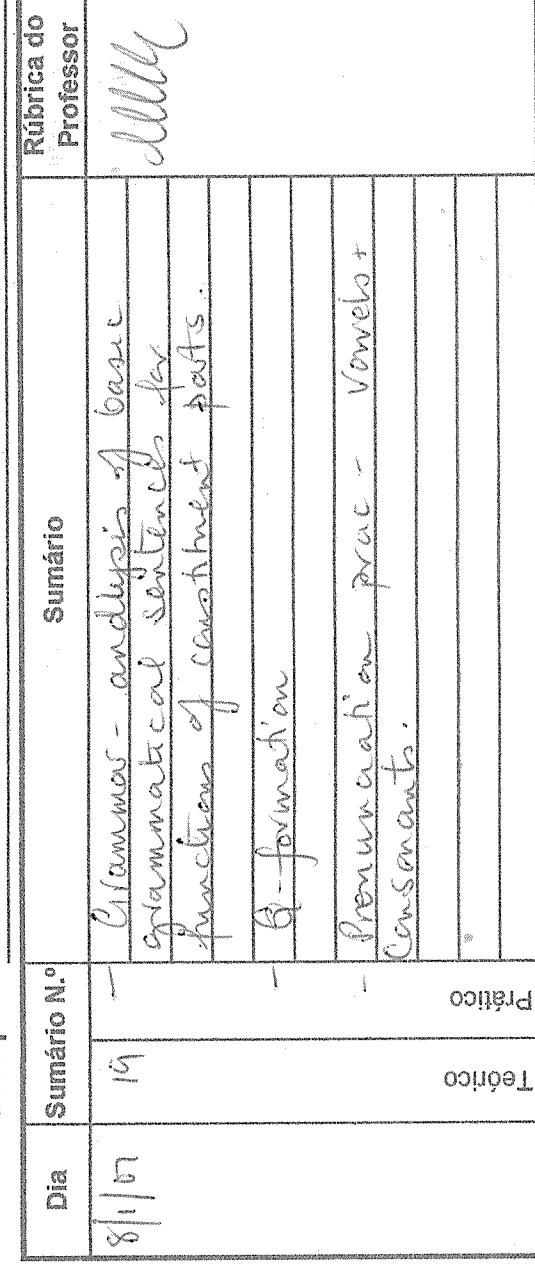 Dia
Sumário N.º
Sumário
Rúbrica do
Professor
8/1/07
19
- Grammar - analysis of basic
grammatical sentences for
functions of constituent parts.
- Q-formation
- Pronunciation prac - Vowels +
Consonants.
Teórico
Prático